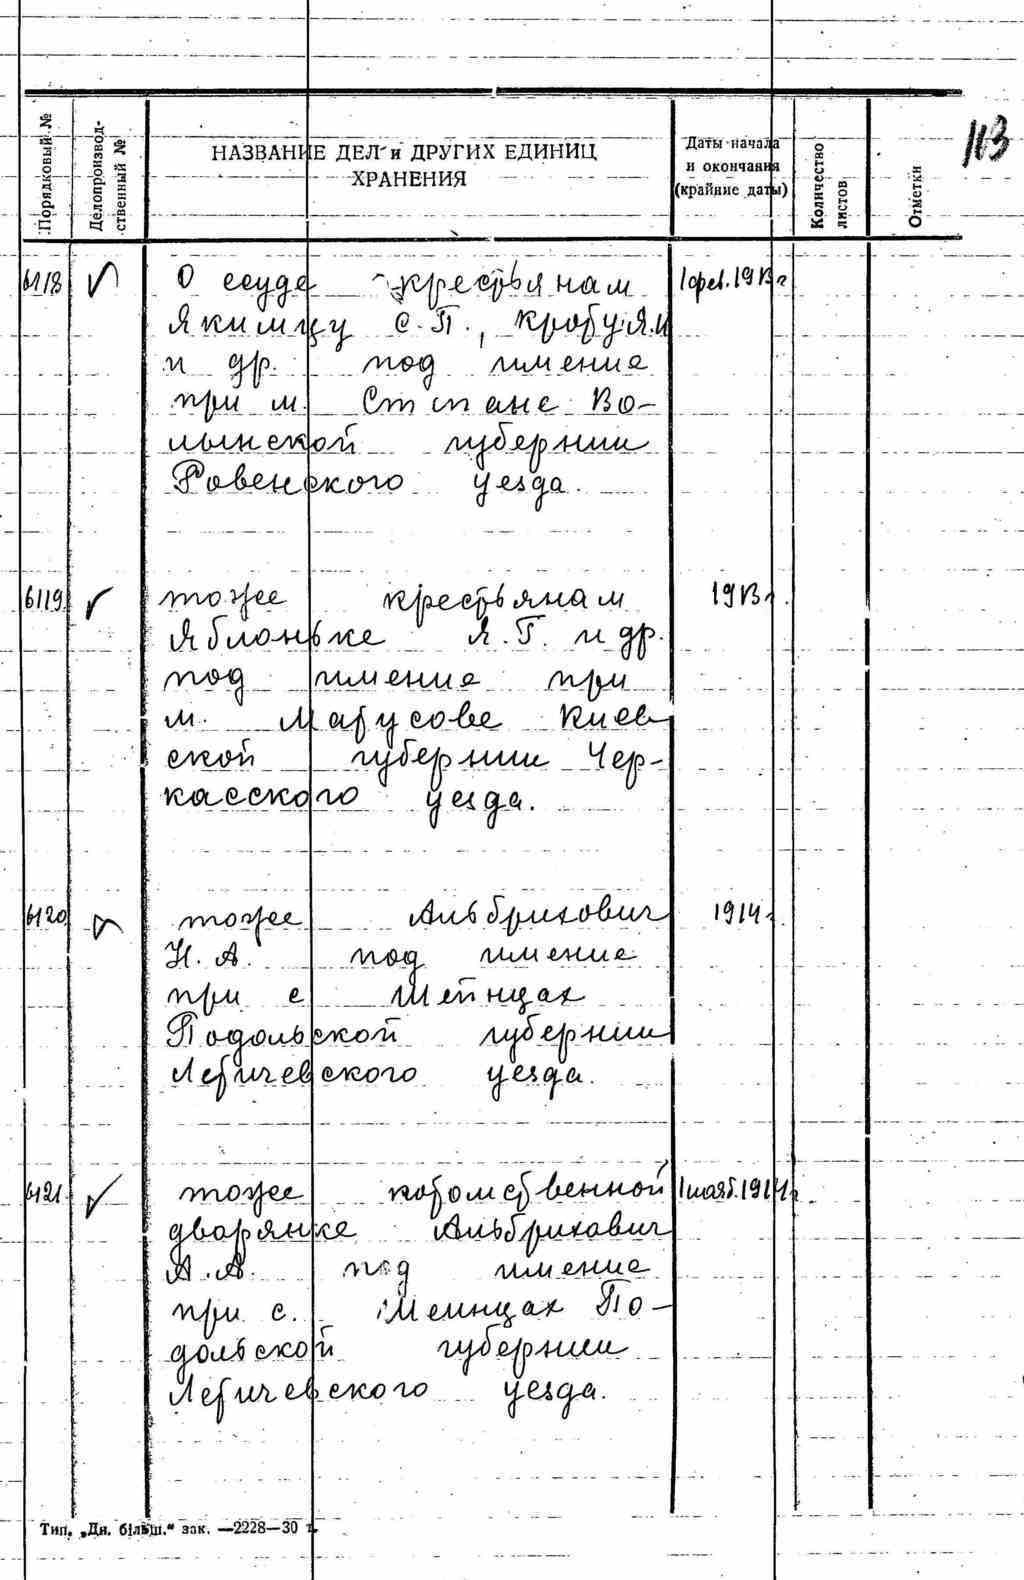 113
Порядковый №
Делопроизвод-
ственный №
НАЗВАНИЕ ДЕЛ и ДРУГИХ ЕДИНИЦ
ХРАНЕНИЯ
Даты начала
и окончания
(крайние даты)
Количество
листов
Отметки
6118 О ссуде крестьянам 1 фев. 1913 г
Якимцу С.П.,
и др. под имение
при м. Степане Во-
лынской губернии
Ровенского уезда.
6119 тоже крестьянам 1913 г.
Яблоньке Я.Г. и др.
под имение при
м. Матусове Киев
ской губернии Чер-
касского уезда.
6120 тоже Альбрихович 1914 г.
Н.А. под имение
при с Мейнцах
Подольской губернии
Летичевского уезда.
6121 тоже потомственной 1 нояб. 1914 г
дворянке Альбрихович
А.А. под имение
при с. Меинцах По-
дольской губернии
Летичевского уезда.
Тип. „Дн. більш.“ зак. —2228—30 т.